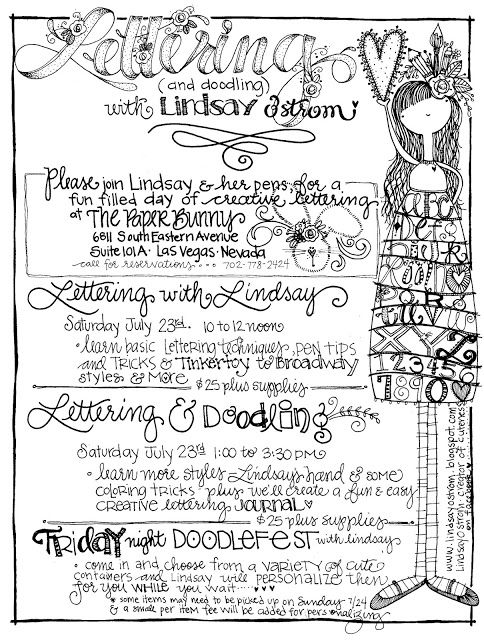 Lettering
(and doodling)
with Lindsay Ostrom
Please join Lindsay & her pens for a
fun filled day of creative lettering
at The Paper Bunny
6811 South Eastern Avenue
Suite 101A · Las Vegas · Nevada
call for reservations.... 702-778-2424
Lettering with Lindsay
Saturday July 23rd. 10 to 12 noon
• learn basic lettering techniques, pen tips
and tricks & Tinkertoy to Broadway
styles & more
$25 plus supplies
Lettering & Doodling
Saturday July 23rd 1:00 to 3:30 pm
• learn more styles - Lindsay's hand & some
coloring tricks plus we'll create a fun & easy
creative lettering journal
$25 plus supplies
Friday night DOODLEFEST with lindsay
• come in and choose from a variety of cute
containers and Lindsay will personalize them
for you while you wait
* some items may need to be picked up on Sunday 7/24
& a small per item fee will be added for personalizing
www.lindsayostrom.blogspot.com
Lindsay Ostrom - creator of cuterkids
on facebook